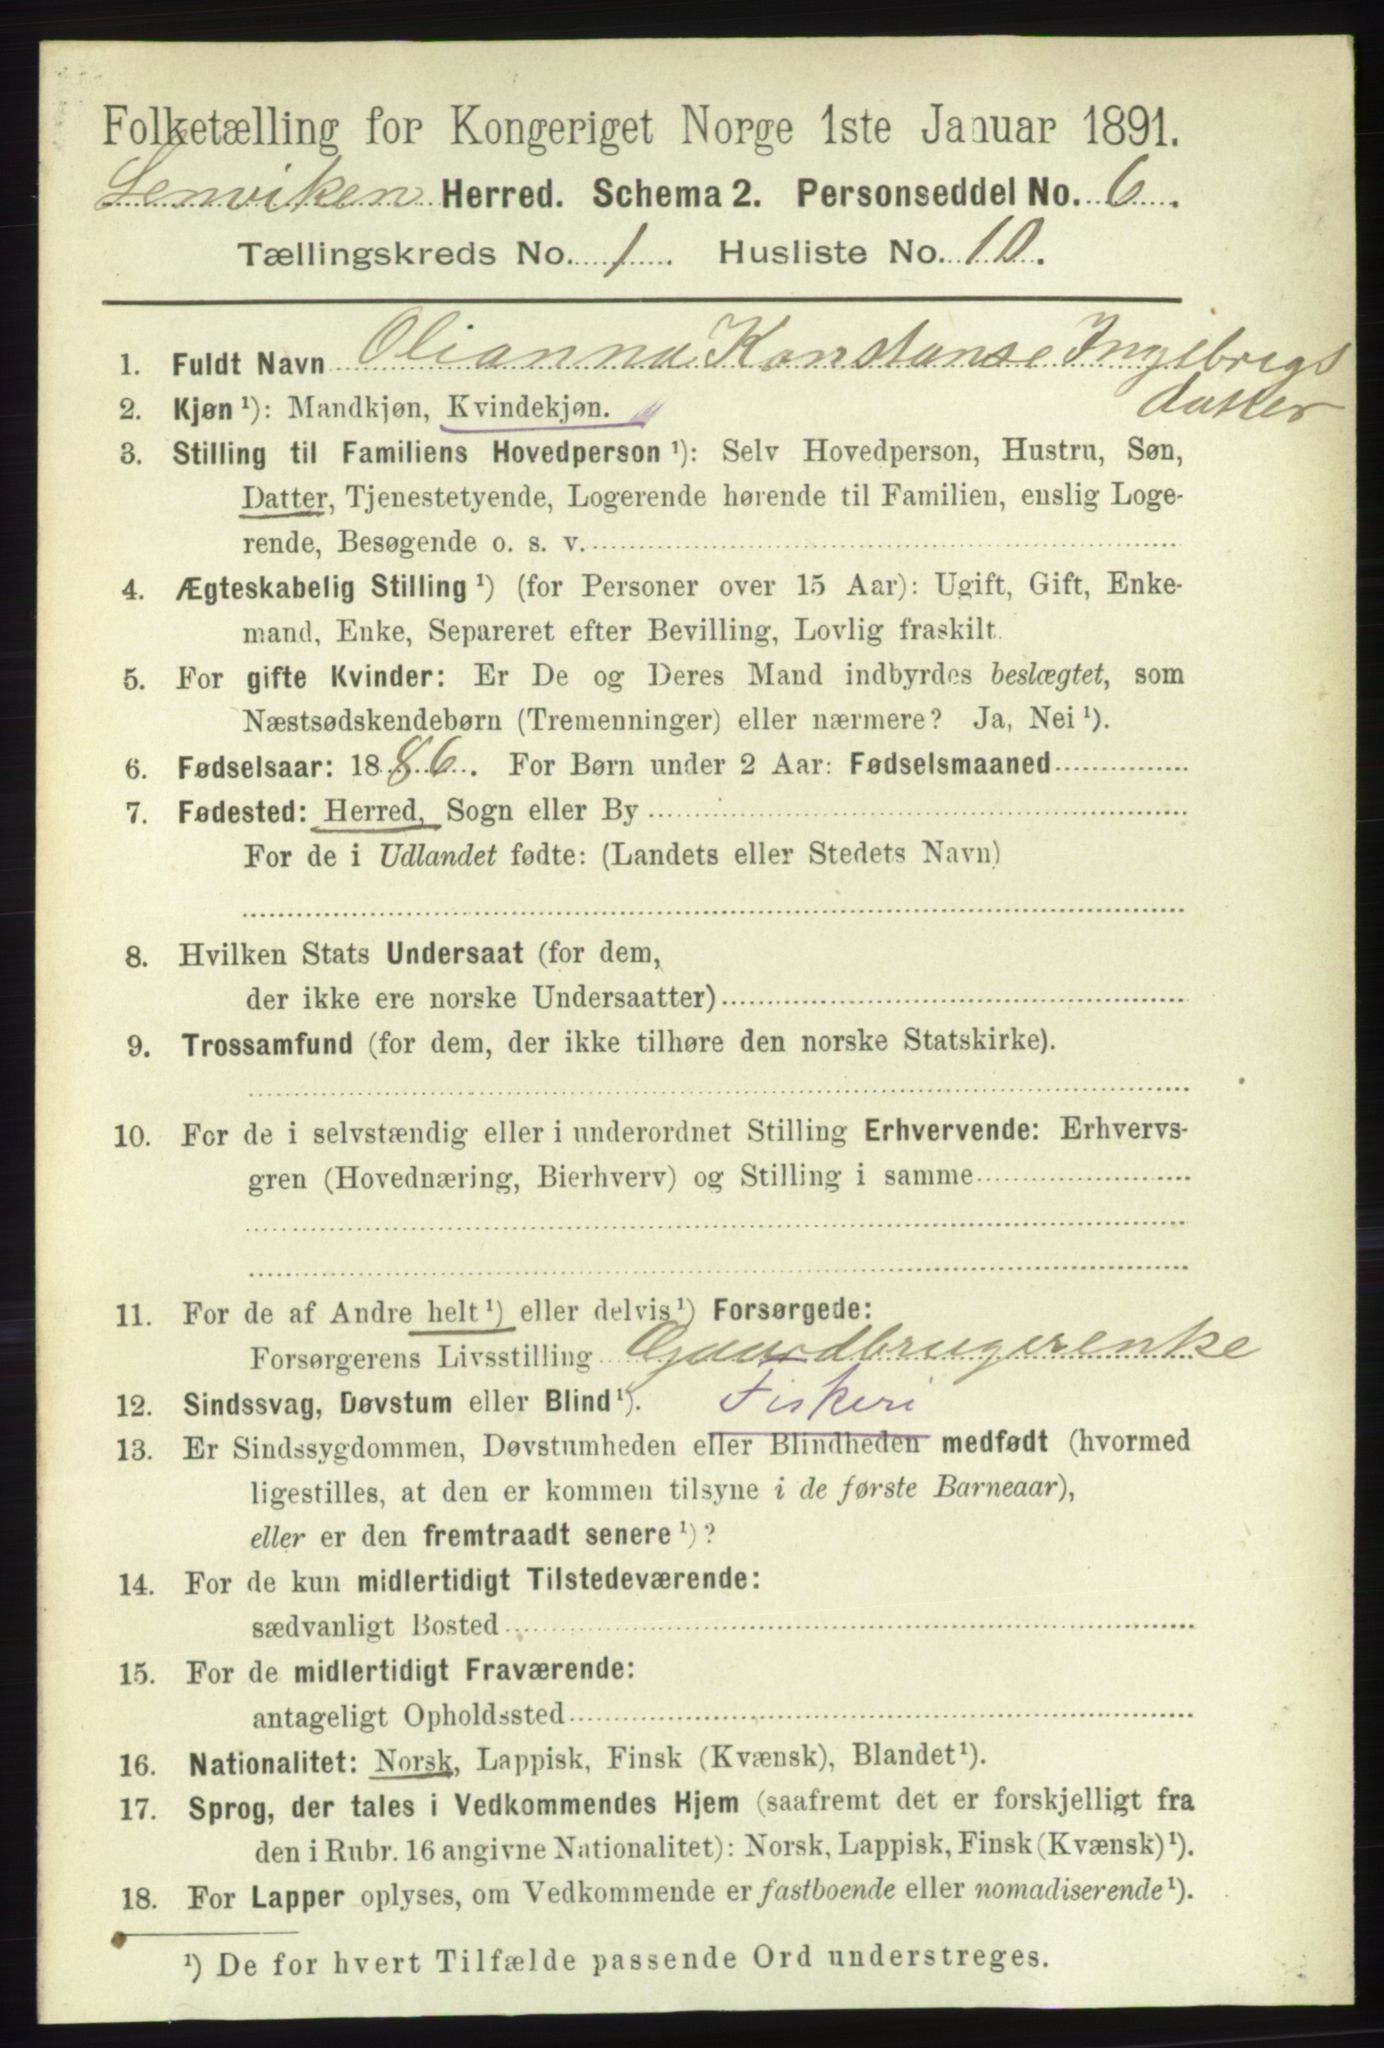 Folketælling for Kongeriget Norge 1ste Januar 1891.
Lenviken Herred. Schema 2. Personseddel No. 6.
Tællingskreds No. 1. Husliste No. 10.
1. Fuldt Navn Olianna Konstanse Ingebrigs
datter
2. Kjøn ¹): Mandkjøn, Kvindekjøn.
3. Stilling til Familiens Hovedperson ¹): Selv Hovedperson, Hustru, Søn,
Datter, Tjenestetyende, Logerende hørende til Familien, enslig Loge-
rende, Besøgende o. s. v.
4. Ægteskabelig Stilling ¹) (for Personer over 15 Aar): Ugift, Gift, Enke-
mand, Enke, Separeret efter Bevilling, Lovlig fraskilt.
5. For gifte Kvinder: Er De og Deres Mand indbyrdes beslægtet, som
Næstsødskendebørn (Tremenninger) eller nærmere? Ja, Nei ¹).
6. Fødselsaar: 1886. For Børn under 2 Aar: Fødselsmaaned
7. Fødested: Herred, Sogn eller By
For de i Udlandet fødte: (Landets eller Stedets Navn)
8. Hvilken Stats Undersaat (for dem,
der ikke ere norske Undersaatter)
9. Trossamfund (for dem, der ikke tilhøre den norske Statskirke).
10. For de i selvstændig eller i underordnet Stilling Erhvervende: Erhvervs-
gren (Hovednæring, Bierhverv) og Stilling i samme
11. For de af Andre helt ¹) eller delvis ¹) Forsørgede:
Forsørgerens Livsstilling Gaardbrugerenke
12. Sindssvag, Døvstum eller Blind ¹). Fiskeri
13. Er Sindssygdommen, Døvstumheden eller Blindheden medfødt (hvormed
ligestilles, at den er kommen tilsyne i de første Barneaar),
eller er den fremtraadt senere ¹)?
14. For de kun midlertidigt Tilstedeværende:
sædvanligt Bosted
15. For de midlertidigt Fraværende:
antageligt Opholdssted
16. Nationalitet: Norsk, Lappisk, Finsk (Kvænsk), Blandet ¹).
17. Sprog, der tales i Vedkommendes Hjem (saafremt det er forskjelligt fra
den i Rubr. 16 angivne Nationalitet): Norsk, Lappisk, Finsk (Kvænsk) ¹).
18. For Lapper oplyses, om Vedkommende er fastboende eller nomadiserende ¹).
¹) De for hvert Tilfælde passende Ord understreges.